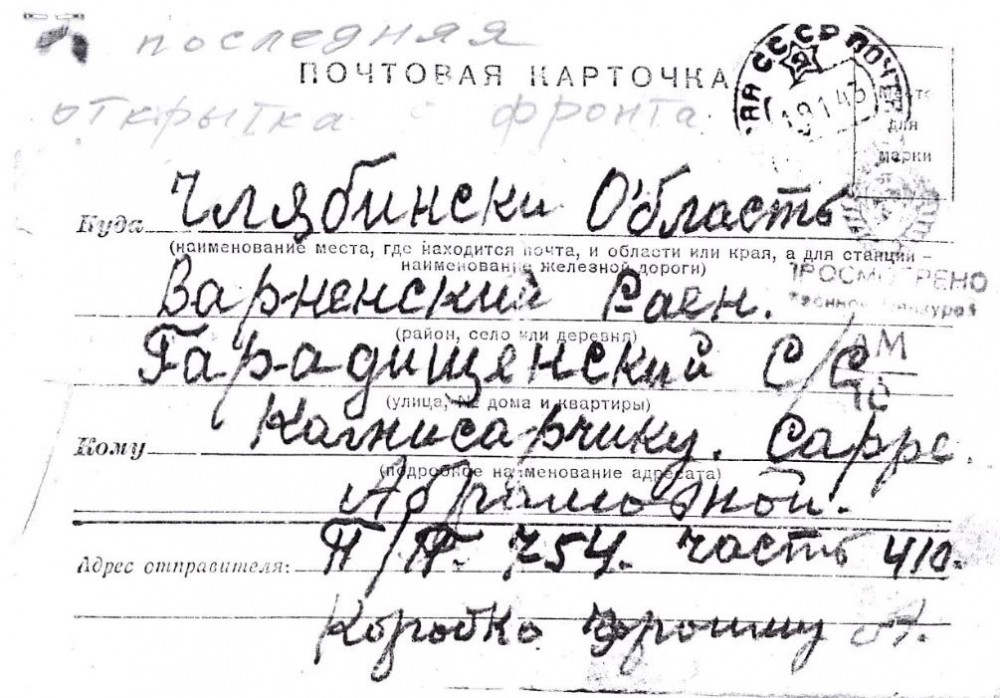 последняя
ПОЧТОВАЯ КАРТОЧКА
открытка с фронта
СССР ПОЧТ
19 1 43
Место
для
марки
Куда Члябински Область
(наименование места, где находится почта, и области или края, а для станций –
наименование железной дороги)
ПРОСМОТРЕНО
Военной Цензурой
Варненский Раен.
(район, село или деревня)
Гарадищенский С/С
АМ
10
(улица, № дома и квартиры)
Кому Кагнисарчику. Сарре.
(подробное наименование адресата)
Абрамовной.
Адрес отправителя: П/П. 754. часть 410.
Коробко А.